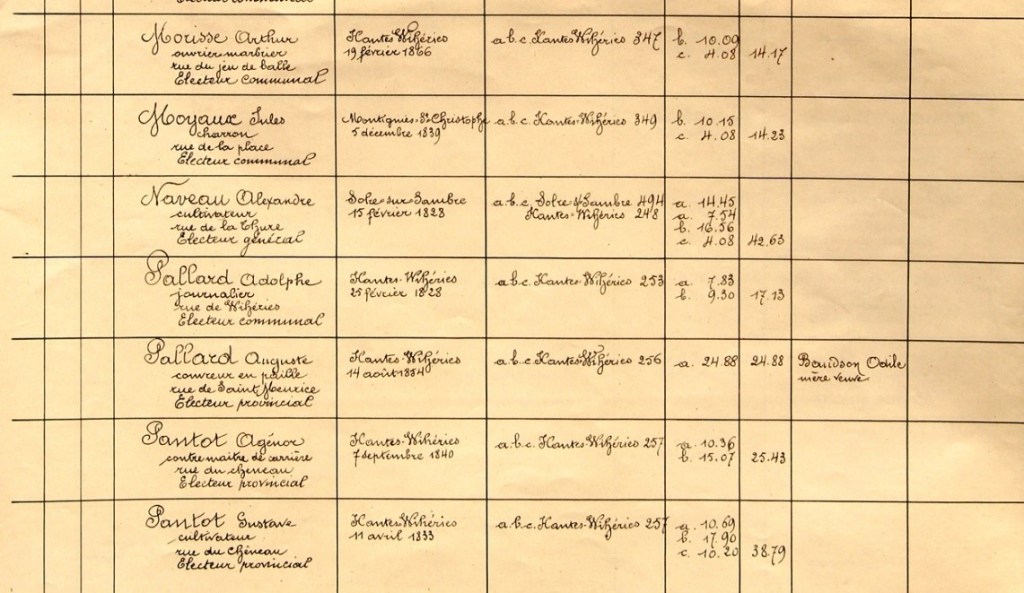 Electeur communal
Morisse Arthur
ouvrier marbrier
rue du jeu de balle
Electeur communal
Hantes Wihéries
19 février 1866
a.b.c. Hantes Wihéries 347
b. 10.09
c. 4.08 14.17
Moyaux Jules
charron
rue de la place
Electeur communal
Montignies-St-Christophe
5 décembre 1839
a.b.c. Hantes-Wihéries 349
b. 10.15
c. 4.08 14.23
Naveau Alexandre
cultivateur
rue de la Thure
Electeur général
Solre-sur-Sambre
15 février 1828
a.b.c. Solre s/ Sambre 494
Hantes-Wihéries 248
a. 14.45
a. 7.54
b. 16.56
c. 4.08 42.63
Pallard Adolphe
journalier
rue de Wihéries
Electeur communal
Hantes-Wihéries
25 février 1828
a.b.c. Hantes-Wihéries 253
a. 7.83
b. 9.30 17.13
Pallard Auguste
couvreur en paille
rue de Saint Meurice
Electeur provincial
Hantes-Wihéries
14 août
a.b.c Hantes-Wihéries 256
a. 24.88 24.88
Baudson Odile
mère veuve
Pantot Agénor
contremaître de carrière
rue du chêneau
Electeur provincial
Hantes-Wihéries
7 septembre 1840
a.b.c. Hantes-Wihéries 257
a. 10.36
b. 15.07 25.43
Pantot Gustave
cultivateur
rue du Chêneau
Electeur provincial
Hantes-Wihéries
11 avril 1833
a.b.c. Hantes-Wihéries 257
a. 10.69
b. 17.90
c. 10.20 38.79